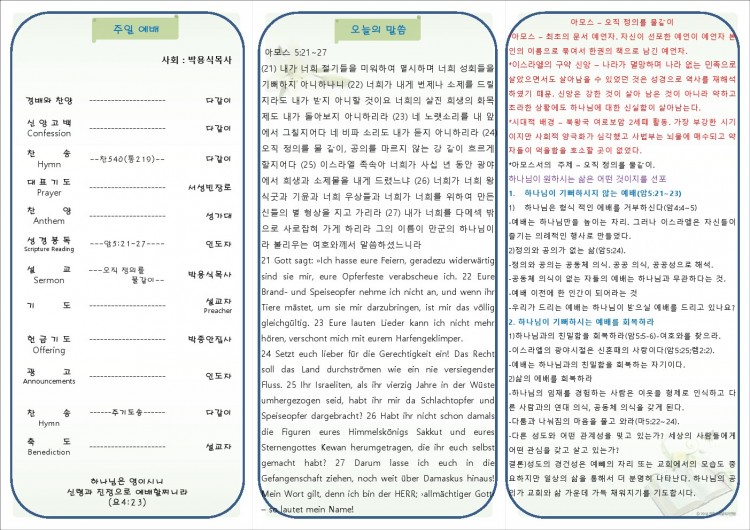 주일 예배
사회 : 박용식목사
경배와 찬양 ---------------------- 다같이
신앙고백 ---------------------- 다같이
Confession
찬 송 --찬540(통219)-- 다같이
Hymn
대표기도 ---------------------- 서성빈장로
Prayer
찬 양 ---------------------- 성가대
Anthem
성경봉독 ---암5:21-27---- 인도자
Scripture Reading
설 교 ---오직 정의를
물같이-- 박용식목사
Sermon
기 도 ---------------------- 설교자
Preacher
헌금기도 ---------------------- 박종안집사
Offering
광 고 ---------------------- 인도자
Announcements
찬 송 ------주기도송------ 다같이
Hymn
축 도 ---------------------- 설교자
Benediction
하나님은 영이시니
신령과 진정으로 예배할찌니라
(요4:23)
오늘의 말씀
아모스 5:21~27
(21) 내가 너희 절기들을 미워하여 멸시하며 너희 성회들을
기뻐하지 아니하나니 (22) 너희가 내게 번제나 소제를 드릴
지라도 내가 받지 아니할 것이요 너희의 살진 희생의 화목
제도 내가 돌아보지 아니하리라 (23) 네 노랫소리를 내 앞
에서 그칠지어다 네 비파 소리도 내가 듣지 아니하리라 (24)
오직 정의를 물 같이, 공의를 마르지 않는 강 같이 흐르게
할지어다 (25) 이스라엘 족속아 너희가 사십 년 동안 광야
에서 희생과 소제물을 내게 드렸느냐 (26) 너희가 너희 왕
식굿과 기윤과 너희 우상들과 너희가 너희를 위하여 만든
신들의 별 형상을 지고 가리라 (27) 내가 너희를 다메섹 밖
으로 사로잡혀 가게 하리라 그의 이름이 만군의 하나님이
라 불리우는 여호와께서 말씀하셨느니라
21 Gott sagt: »Ich hasse eure Feiern, geradezu widerwärtig
sind sie mir, eure Opferfeste verabscheue ich. 22 Eure
Brand- und Speiseopfer nehme ich nicht an, und wenn ihr
Tiere mästet, um sie mir darzubringen, ist mir das völlig
gleichgültig. 23 Eure lauten Lieder kann ich nicht mehr
hören, verschont mich mit eurem Harfengeklimper.
24 Setzt euch lieber für die Gerechtigkeit ein! Das Recht
soll das Land durchströmen wie ein nie versiegender
Fluss. 25 Ihr Israeliten, als ihr vierzig Jahre in der Wüste
umhergezogen seid, habt ihr mir da Schlachtopfer und
Speiseopfer dargebracht? 26 Habt ihr nicht schon damals
die Figuren eures Himmelskönigs Sakkut und eures
Sternengottes Kewan herumgetragen, die ihr euch selbst
gemacht habt? 27 Darum lasse ich euch in die
Gefangenschaft ziehen, noch weit über Damaskus hinaus!
Mein Wort gilt, denn ich bin der HERR; ›allmächtiger Gott‹
– so lautet mein Name!
아모스 – 오직 정의를 물같이
아모스 – 최초의 문서 예언자. 자신이 선포한 예언이 예언자 본
인의 이름으로 묶여서 한권의 책으로 남긴 예언자.
*이스라엘의 구약 신앙 – 나라가 멸망하여 나라 없는 민족으로
살았으면서도 살아남을 수 있었던 것은 성경으로 역사를 재해석
하였기 때문. 신앙은 강한 것이 살아 남은 것이 아니라 약하고
초라한 상황에도 하나님에 대한 신실함이 살아남는다.
*시대적 배경 – 북왕국 여로보암 2세때 활동. 가장 부강한 시기
이지만 사회적 양극화가 심각했고 사법부는 뇌물에 매수되고 약
자들이 억울함을 호소할 곳이 없었다.
*아모스서의 주제 – 오직 정의를 물같이.
하나님이 원하시는 삶은 어떤 것이지를 선포
1. 하나님이 기뻐하시지 않는 예배(암5:21~23)
1) 하나님은 형식 적인 예배를 거부하신다(암4:4~5)
-예배는 하나님만을 높이는 자리. 그러나 이스라엘은 자신들이
즐기는 의례적인 행사로 만들었다.
2)정의와 공의가 없는 삶(암5:24).
-정의와 공의는 공동체 의식, 공공 의식, 공공성으로 해석.
-공동체 의식이 없는 자들의 예배는 하나님과 무관하다는 것.
-예배 이전에 한 인간이 되어라는 것
-우리가 드리는 예배는 하나님이 받으실 예배를 드리고 있나요?
2. 하나님이 기뻐하시는 예배를 회복하라
1)하나님과의 친밀함을 회복하라(암5:5-6)-여호와를 찾으라.
-이스라엘의 광야시절은 신혼때의 사랑이다(암5:25;렘2:2).
-예배는 하나님과의 친밀함을 회복하는 자기이다.
2)삶의 예배를 회복하라
-하나님의 임재를 경험하는 사람은 이웃을 형제로 인식하고 다
른 사람과의 연대 의식, 공동체 의식을 갖게 된다.
-다툼과 나눠짐의 마음을 풀고 와라(마5:22~24).
-다른 성도와 어떤 관계성을 맺고 있는가? 세상의 사람들에게
어떤 관심을 갖고 살고 있는가?
결론)성도의 경건성은 예빼의 자리 또는 교회에서의 모습도 중
요하지만 일상의 삶을 통해서 더 분명히 나타난다. 하나님의 공
의가 교회와 삶 가운데 가득 채워지기를 기도합시다.